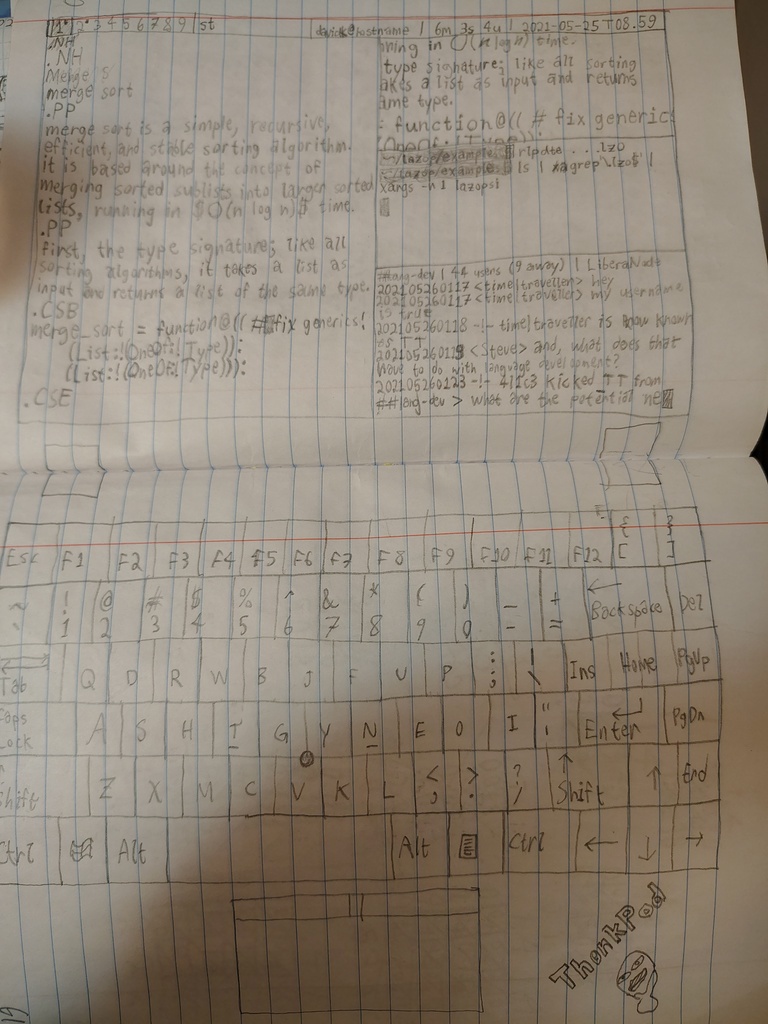 1 2 3 4 5 6 7 8 9 st
hostname | 6m 3s 4u | 2021-05-25T08.59
.NH
.NH
Merge S
merge sort
.PP
merge sort is a simple, recursive,
efficient, and stable sorting algorithm.
it is based around the concept of
merging sorted sublists into larger sorted
lists, running in $O(n log n)$ time.
.PP
first, the type signature; like all
sorting algorithms, it takes a list as
input and returns a list of the same type.
.CSB
merge_sort = function@(( # fix generics!
(List:!(OneOf:!Type)):
(List:!(OneOf:!Type))):
.CSE
ning in O(n log n) time.
type signature; like all sorting
akes a list as input and returns
ame type.
: function@(( # fix generics
~/lazop/examples rlpdte . . .lzo
~/lazop/examples ls | grep \.lzo$ |
xargs -n 1 lazopsi
-dev | 44 users (9 away) |
202105260117 <time|traveller> hey
202105260117 <time|traveller> my username
is true
202105260118 -!- time|traveller is now known
as TT
<Steve> and, what does that
have to do with language development?
202105260123 -!- kicked TT from
-dev > what are the potential ne
Esc F1 F2 F3 F4 F5 F6 F7 F8 F9 F10 F11 F12 { [ } ]
~ ! @ # $ % ^ & * ( ) _ +
` 1 2 3 4 5 6 7 8 9 0 - = Backspace Del
Tab Q D R W B J F U P : ; | \ Ins Home PgUp
Caps Lock A S H T G Y N E O I " ' Enter PgDn
Shift Z X M C V K L < , > . ? / Shift ↑ End
Ctrl Alt Alt Ctrl ← ↓ →
ThonkPad